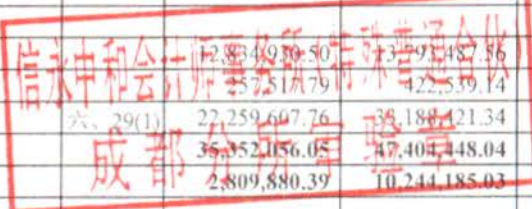 信永中和会计师事务所(特殊普通合伙)
成都分所审验章
12,834,930.50 13,793,487.56
257,517.79 422,539.14
六、29(1) 22,259,607.76 33,188,421.34
35,352,056.05 47,404,448.04
2,809,880.39 10,244,185.03